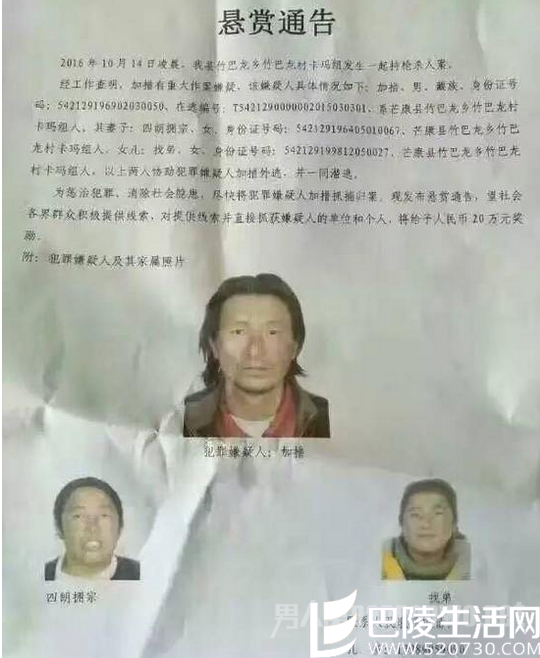 悬赏通告
2016年10月14日凌晨，我县竹巴龙乡竹巴龙村卡玛组发生一起持枪杀人案。
经工作查明，加措有重大作案嫌疑，该嫌疑人具体情况如下：加措、男、藏族、身份证号
码：542129196902030050、在逃编号：T5421290000002015030301、系芒康县竹巴龙乡竹巴龙村
卡玛组人，其妻子：四朗拥宗、女、身份证号码：542129196405010067、芒康县竹巴龙乡竹巴
龙村卡玛组人、女儿：找弟、女、身份证号码：542129199812050027、芒康县竹巴龙乡竹巴龙
村卡玛组人，以上两人协助犯罪嫌疑人加措外逃，并一同潜逃。
为惩治犯罪、消除社会隐患，尽快将犯罪嫌疑人加措抓捕归案。现发布悬赏通告，望社会
各界群众积极提供线索，对提供线索并直接抓获嫌疑人的单位和个人，将给予人民币20万元奖
励。
附：犯罪嫌疑人及其家属照片
犯罪嫌疑人：加措
四朗拥宗
找弟
巴陵生活网
www.0730.com